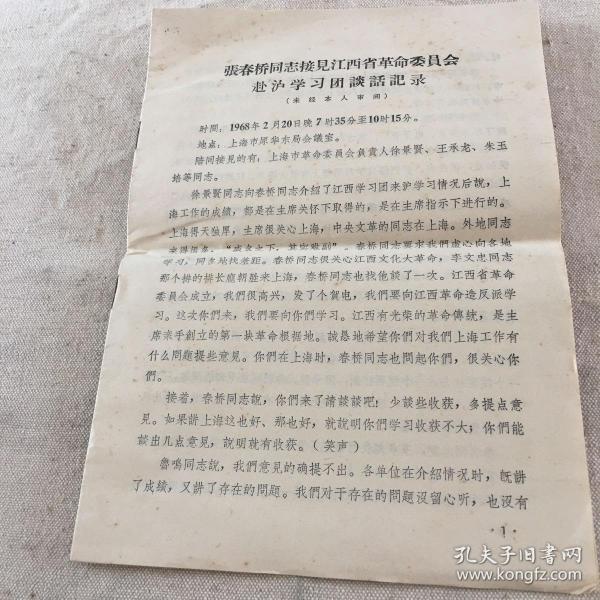 張春桥同志接見江西省革命委員会
赴沪学习团談話記录
(未經本人审阅)
时間:1968年2月20日晚7时35分至10时15分。
地点:上海市原华东局会議室。
陪同接見的有:上海市革命委員会負責人徐景賢、王承龙、朱玉
培等同志。
徐景賢同志向春桥同志介紹了江西学习团来沪学习情况后說,上
海工作的成績,都是在主席关怀下取得的,是在主席指示下进行的。
上海得天独厚,主席很关心上海,中央文革的同志在上海。外地同志
来得很多,“盛名之下,其实难副”。春桥同志要求我們虚心向各地
学习,同各地找差距。春桥同志很关心江西文化大革命,李文忠同志
那个排的排长龍朝胜来上海,春桥同志也找他談了一次。江西省革命
委員会成立,我們很高兴,发了个賀电,我們要向江西革命造反派学
习。这次你們来,我們要向你們学习。江西有光荣的革命傳統,是主
席亲手創立的第一块革命根据地。誠恳地希望你們对我們上海工作有
什么問題提些意見。你們在上海时,春桥同志也問起你們,很关心你
們。
接着,春桥同志說,你們来了請談談吧!少談些收获,多提点意
見。如果講上海这也好、那也好,就說明你們学习收获不大;你們能
談出几点意見,說明就有收获。(笑声)
魯鳴同志說,我們意見的确提不出。各单位在介紹情况时,旣講
了成績,又講了存在的問題。我們对于存在的問題沒留心听,也沒有
·1·
孔夫子旧书网
www.kongfz.com